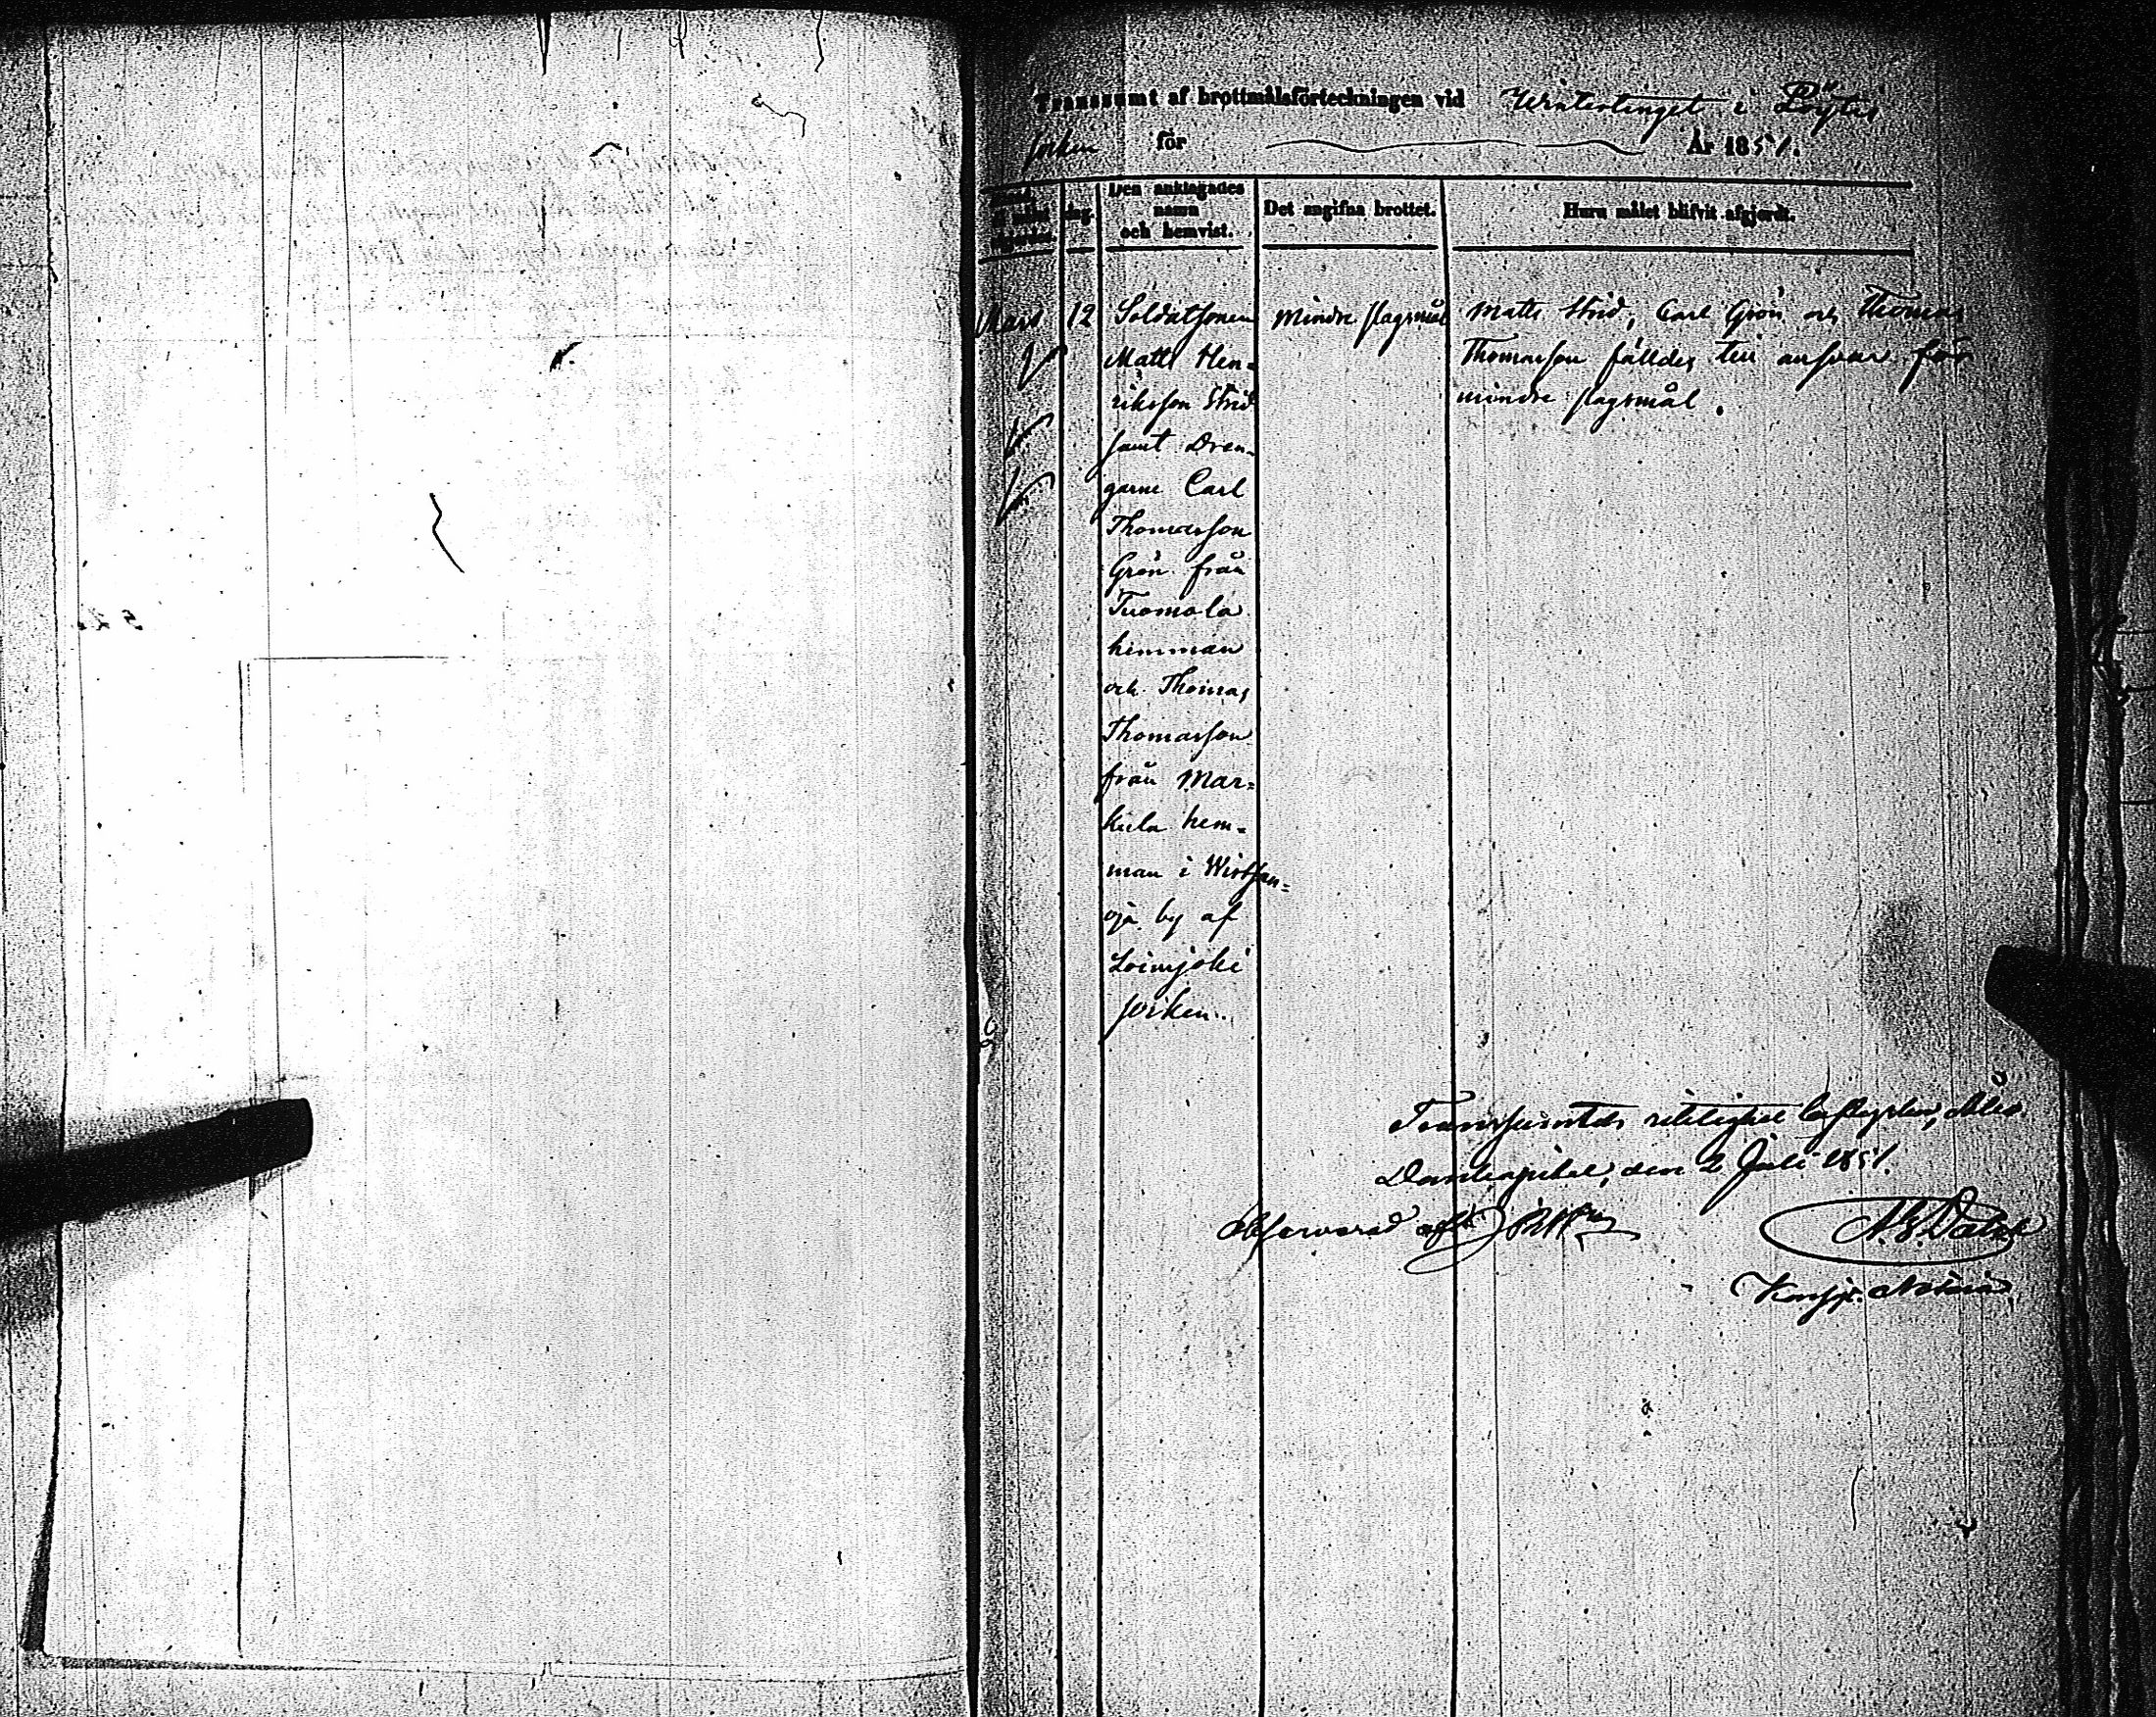 Transsumt af brottmålsförteckningen vid Wintertinget i Pöytis
socken för År 1851.
dag.
Den anklagades
namn
och hemvist.
Det angifna brottet.
Huru målet blifvit afgjordt.
Mars 12
Soldatsonen
Matts Hen-
riksson Strid
samt Dren-
garne Carl
Thomasson
Grön från
Tuomola
himman
och Thomas
Thomasson
från Mar-
kula hem-
man i Wirtsan-
oja by af
Loimjoki
socken.
Mindre slagsmål
Matts Strid, Carl Grön och Thomas
Thomasson fälldes till ansvar för
mindre slagsmål.
Transsumtets riktighet bestyrker, Åbo
Domkapitel, den 2 Juli 1851.
Konsist. Notarie